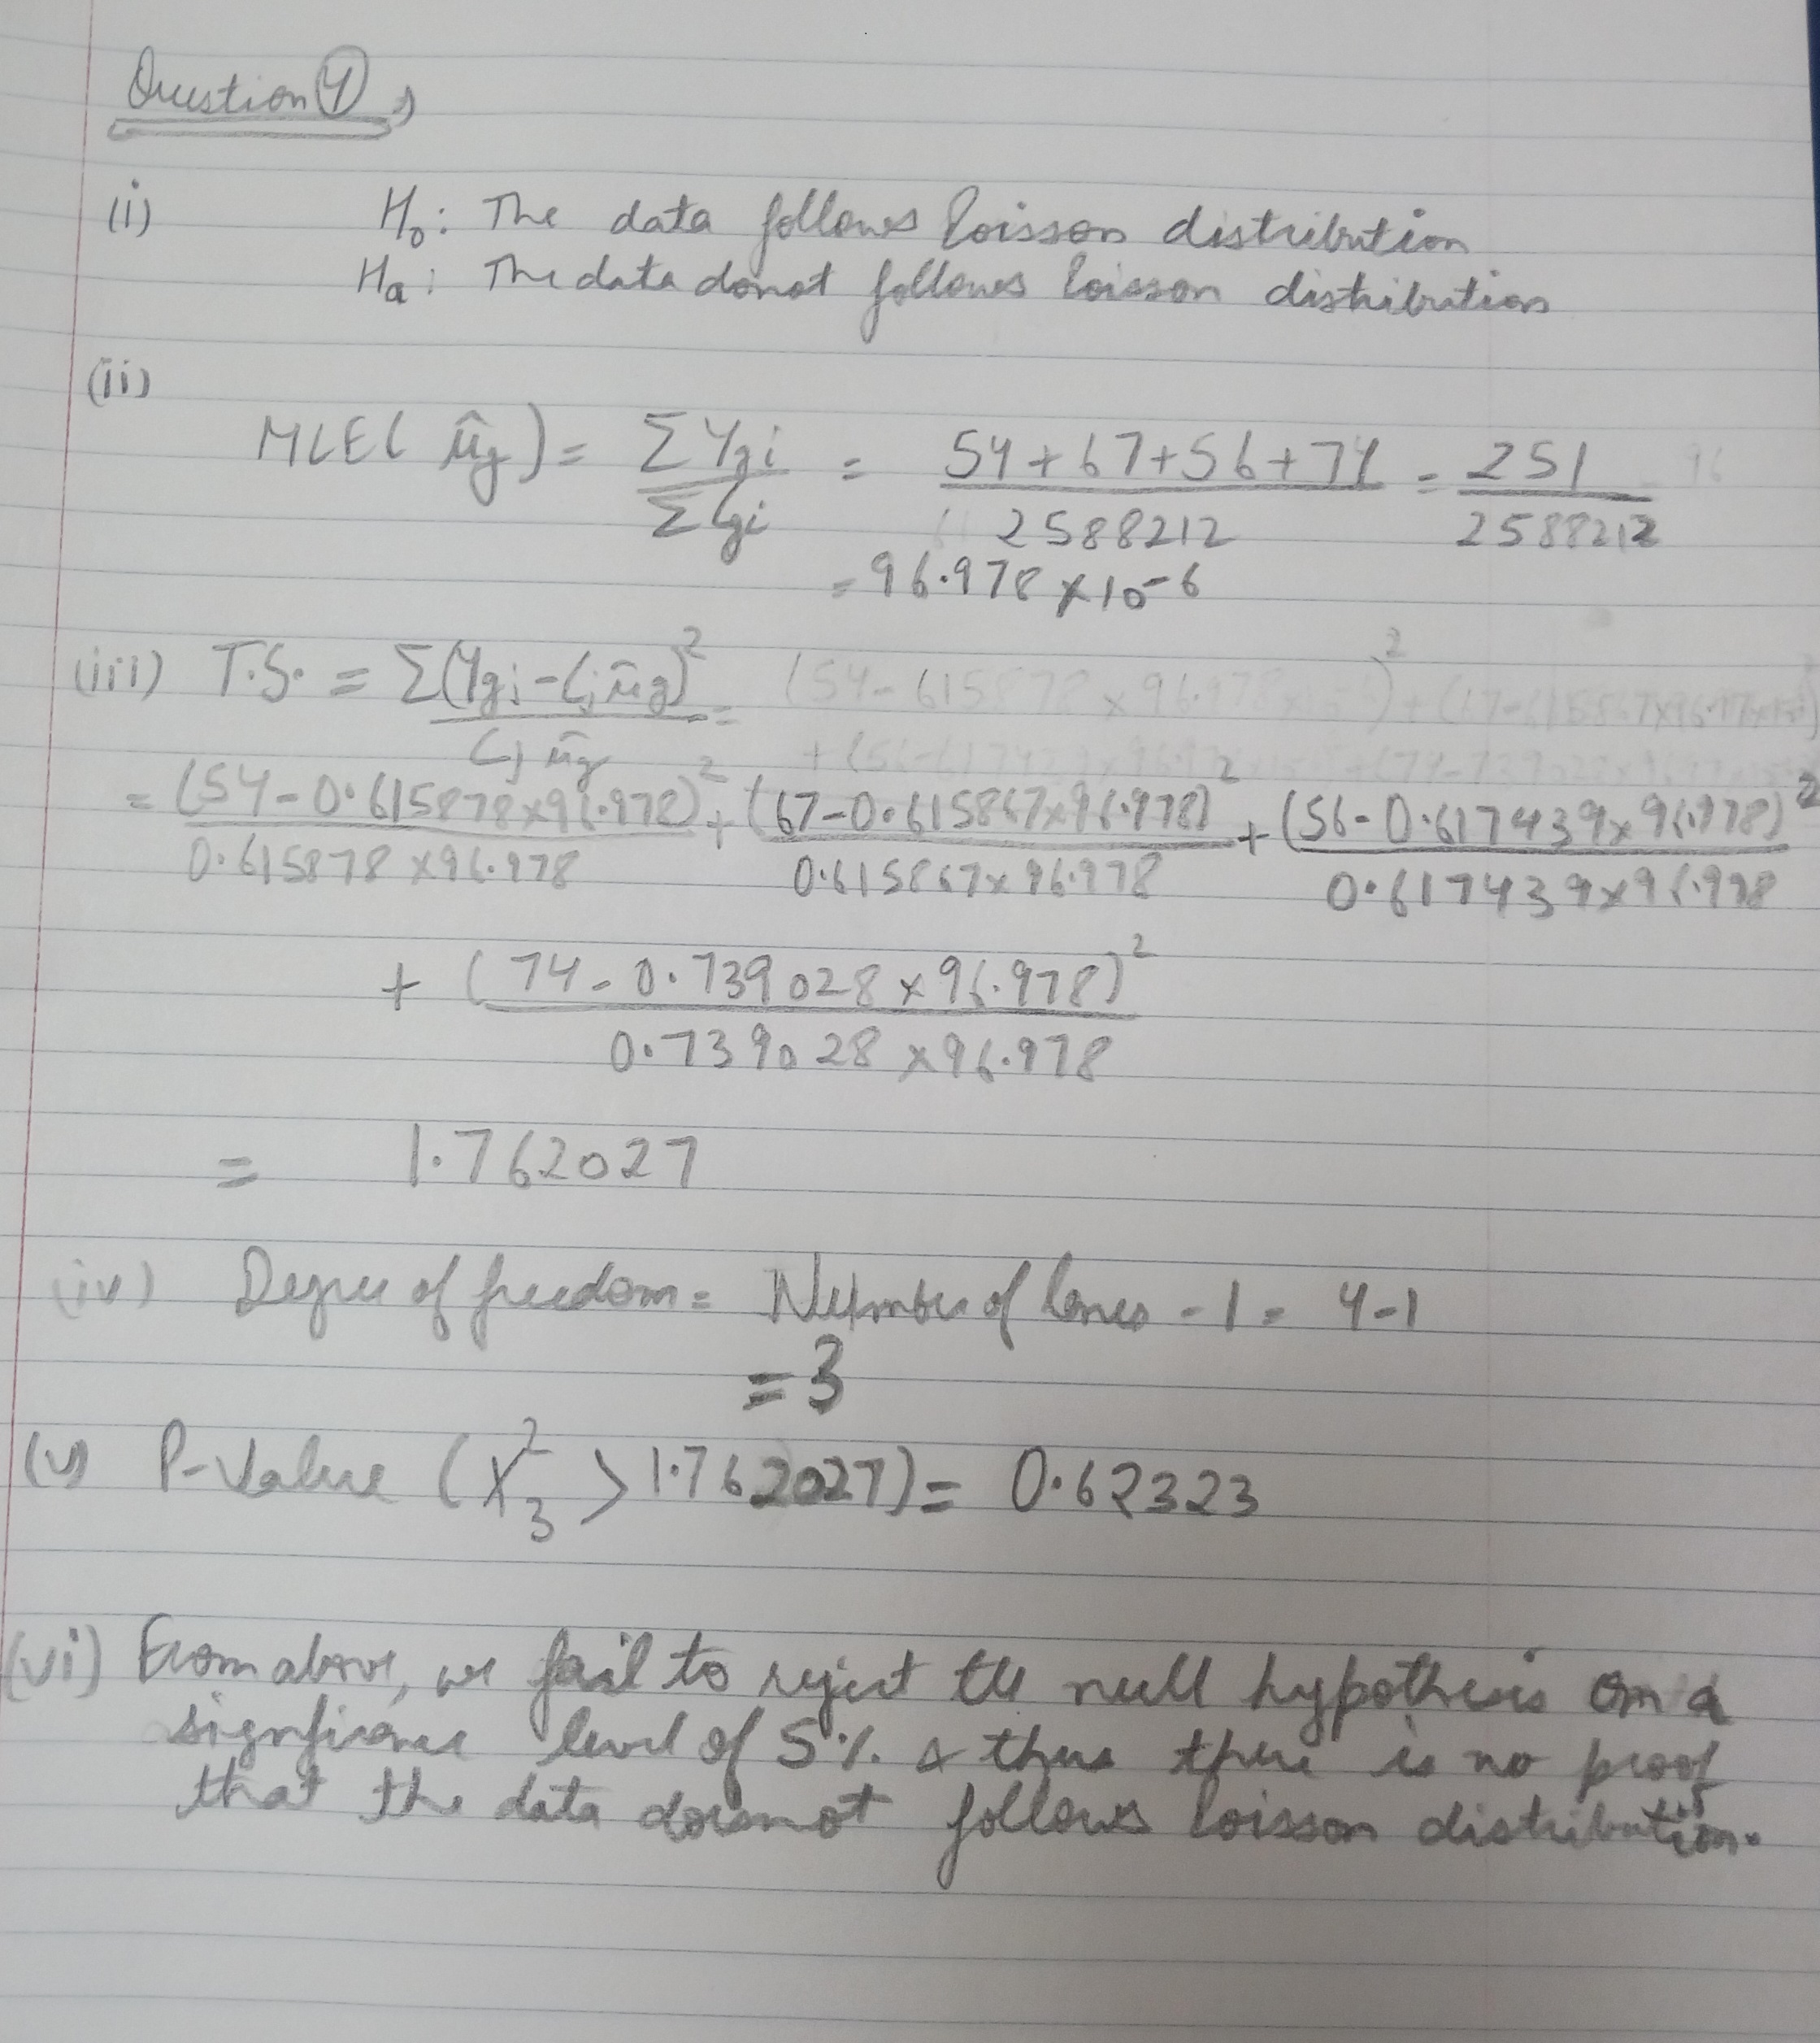 Question 4,
(i) H₀: The data follows Poisson distribution
Hₐ: The data donot follows Poisson distribution
(ii)
MLE( μ̂g ) = ΣYgi / ΣCgi = 54+67+56+74 / 2588212 = 251 / 2588212
= 96.978 × 10^-6
(iii) T.S. = Σ(Ygi - Cj μ̂g)² / Cj μ̂g =
= (54-0.615878×96.978)² / 0.615878×96.978 + (67-0.615867×96.978)² / 0.615867×96.978 + (56-0.617439×96.978)² / 0.617439×96.978
+ (74-0.739028×96.978)² / 0.739028×96.978
= 1.762027
(iv) Degree of freedom = Number of lanes - 1 = 4-1
= 3
(v) P-Value (X²₃ > 1.762027) = 0.62323
(vi) From above, we fail to reject the null hypothesis on a
significance level of 5% & thus there is no proof
that the data doesnot follows Poisson distribution.